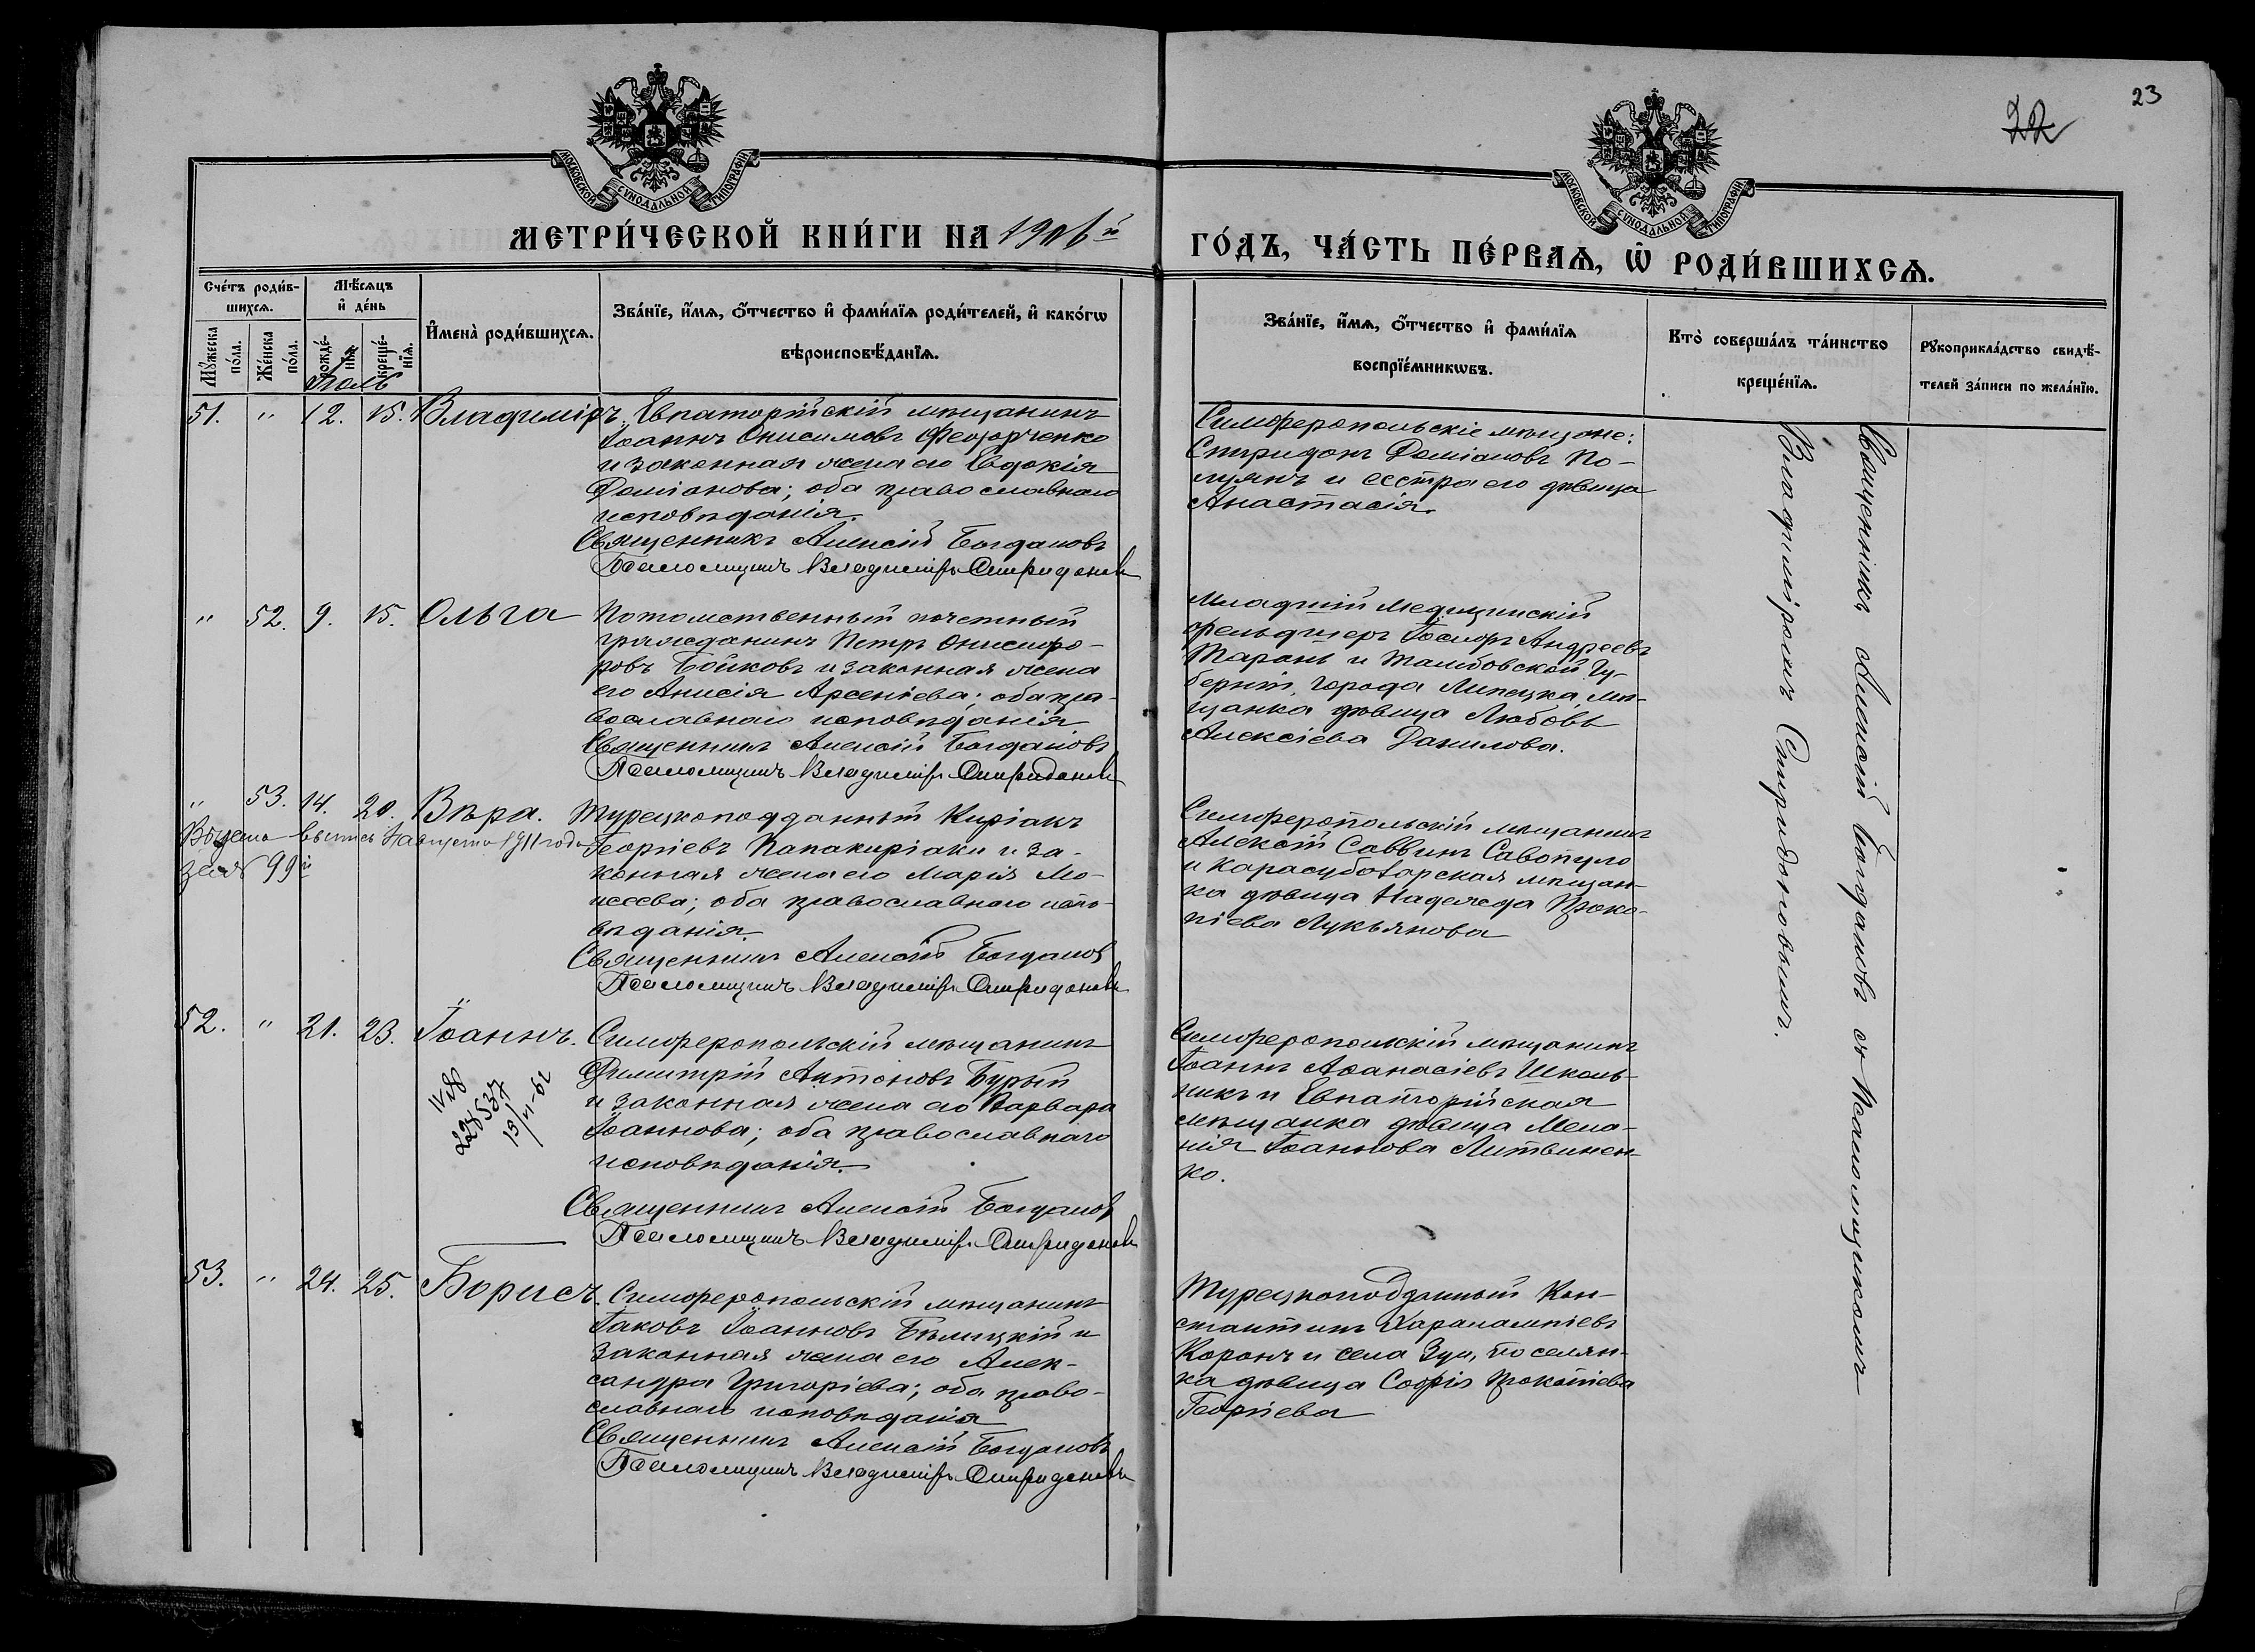 23
22
МОСКОВСКОЙ СѴНОДАЛЬНОЙ ТИПОГРАФІИ
МОСКОВСКОЙ СѴНОДАЛЬНОЙ ТИПОГРАФІИ
МЕТРИ́ЧЕСКОЙ КНИ́ГИ НА 1906й
ГО́ДЪ, ЧА́СТЬ ПЕ́РВАѦ, Ѡ҆ РОДИ́ВШИХСѦ.
Сче́тъ роди́в-
шихсѧ.
Мѣ́сѧцъ
и҆ де́нь
Мꙋ́жеска по́ла.
Же́нска по́ла.
рожде́-нїѧ.
креще́-нїѧ.
И҆мена̀ роди́вшихсѧ.
Зва́нїе, и҆́мѧ, ѻ҆́тчество и҆ фами́лїѧ роди́телей, и҆ како́гѡ
вѣроисповѣ́данїѧ.
Зва́нїе, и҆́мѧ, ѻ҆́тчество и҆ фами́лїѧ
воспрїе́мникѡвъ.
Кто̀ соверша́лъ та́инство
креще́нїѧ.
Рꙋкоприкла́дство свидѣ́-
телей за́писи по жела́нїю.
Іюль
51. " 12. 15. Владиміръ. Евпаторійскій мѣщанинъ
Іоаннъ Онисимовъ Федорченко
и законная жена его Евдокія
Даміанова; оба православнаго
исповѣданія.
Священникъ Алексій Богдановъ
Псаломщикъ Владиміръ Спиридоновъ
Симферопольскіе мѣщане:
Спиридонъ Даміановъ По-
лужъ и сестра его дѣвица
Анастасія.
" 52. 9. 15. Ольга Потомственный почетный
гражданинъ Петръ Онисифо-
ровъ Бойковъ и законная жена
его Анисія Арсеніева; оба пра-
вославнаго исповѣданія
Священникъ Алексій Богдановъ
Псаломщикъ Владиміръ Спиридоновъ
Младшій медицинскій
фельдшеръ Іосифъ Андреевъ
Таранъ и Тамбовской Гу-
берніи, города Липецка, мѣ-
щанка дѣвица Любовь
Алексіева Данилова.
" 53. 14. 20. Вѣра. Турецкоподданный Киріакъ
Георгіевъ Папакиріаки и за-
конная жена его Марія Мо-
исеева; оба православнаго испо-
вѣданія.
Священникъ Алексій Богдановъ
Псаломщикъ Владиміръ Спиридоновъ
Выдана выпись Августа 1911 года
за № 99й
Симферопольскій мѣщанинъ
Алексій Саввинъ Савопуло
и Карасубазарская мѣщан-
ка дѣвица Надежда Проко-
піева Лукьянова
52. " 21. 23. Іоаннъ. Симферопольскій мѣщанинъ
Димитрій Антоновъ Бурый
и законная жена его Варвара
Іоаннова; оба православнаго
исповѣданія.
Священникъ Алексій Богдановъ
Псаломщикъ Владиміръ Спиридоновъ
Симферопольскій мѣщанинъ
Іоаннъ Аѳанасіевъ Школь-
никъ и Евпаторійская
мѣщанка дѣвица Мела-
нія Іоаннова Литвинен-
ко.
53. " 24. 25. Борисъ. Симферопольскій мѣщанинъ
Іаковъ Іоанновъ Бѣлицкій и
законная жена его Алек-
сандра Григоріева; оба право-
славнаго исповѣданія
Священникъ Алексій Богдановъ
Псаломщикъ Владиміръ Спиридоновъ
Турецкоподданный Кон-
стантинъ Харалампіевъ
Коронъ и села Зуи, поселян-
ка дѣвица Софія Прокопіева
Георгіева
Священникъ Алексій Богдановъ съ Псаломщикомъ
Владиміромъ Спиридоновымъ.